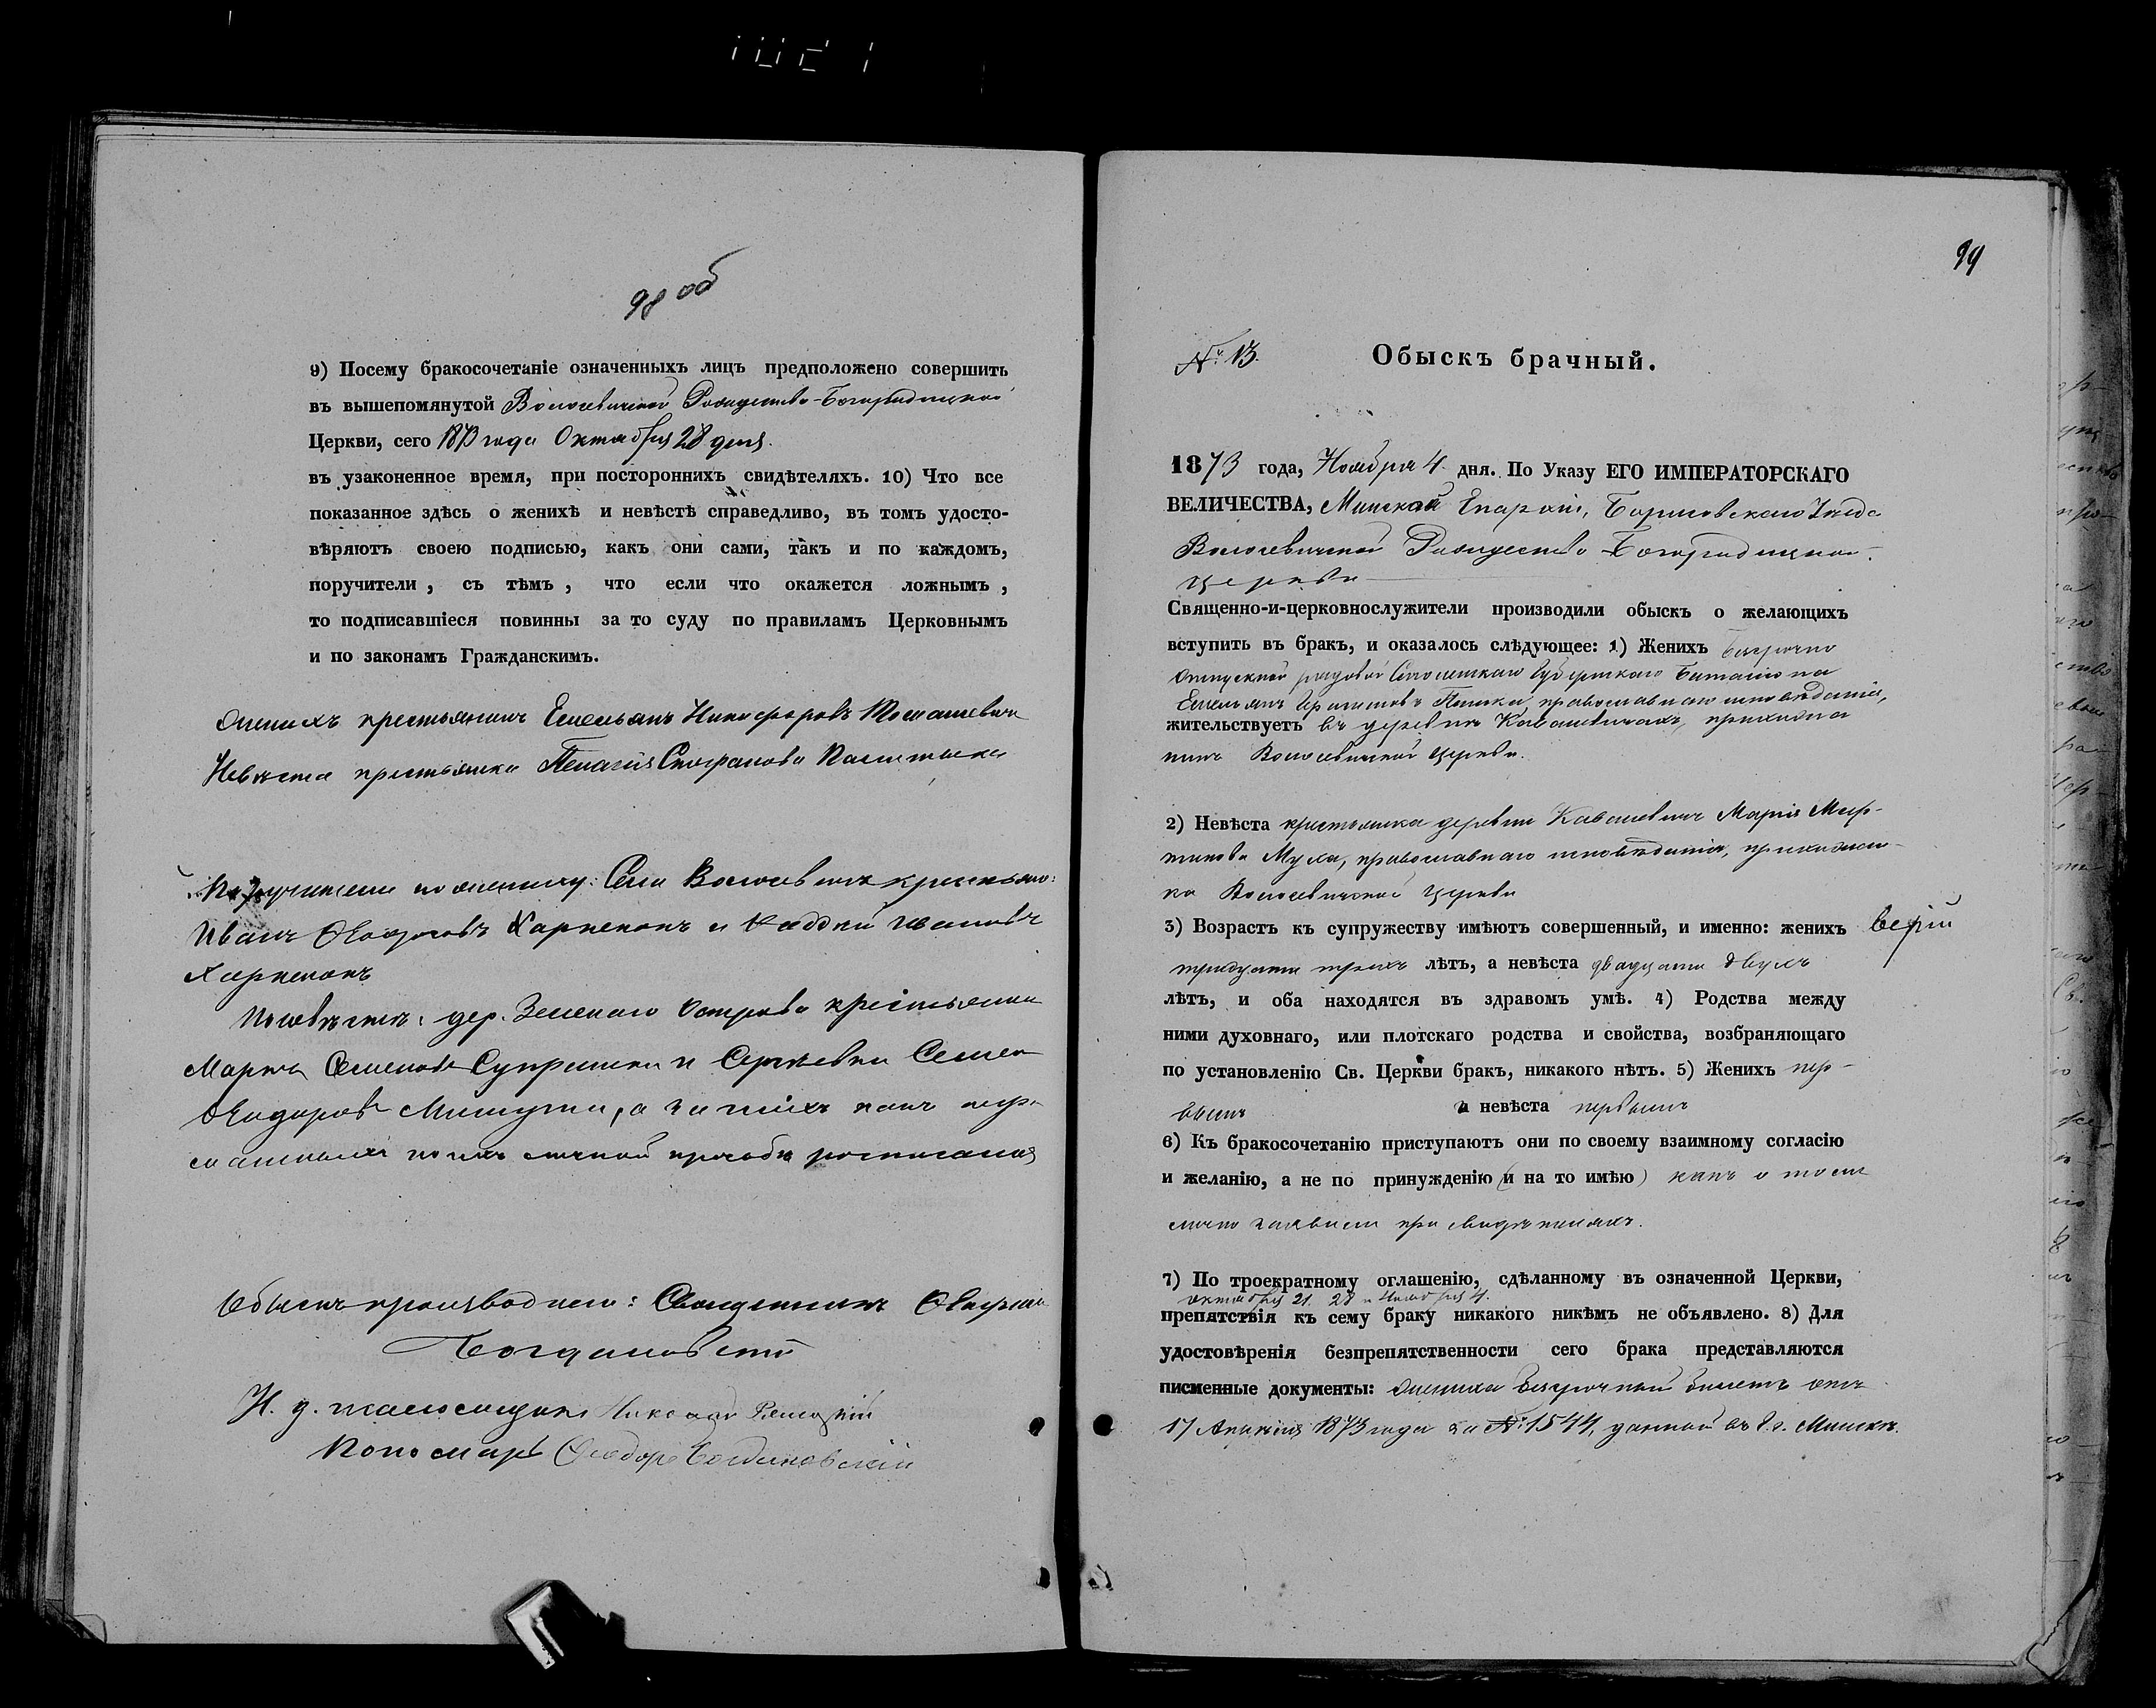 98 об
9) Посему бракосочетаніе означенныхъ лицъ предположено совершить
въ вышепомянутой Волосевичской Рождество-Богородицкой
Церкви, сего 1873 года Октября 28 дня.
въ узаконенное время, при постороннихъ свидѣтеляхъ. 10) Что все
показанное здѣсь о женихѣ и невѣстѣ справедливо, въ томъ удосто-
вѣряютъ своею подписью, какъ они сами, такъ и по каждомъ,
поручители, съ тѣмъ, что если что окажется ложнымъ,
то подписавшіеся повинны за то суду по правиламъ Церковнымъ
и по законамъ Гражданскимъ.
Женихъ крестьянинъ Емельянъ Никифоровъ Томашевичъ
Невѣста крестьянка Пелагія Стефанова
Поручители по женихѣ: Села Волосевичъ крестьяне:
Иванъ Харкенокъ и Фаддей Ивановъ
Харкенокъ
По невѣстѣ: дер. Зеленаго Острова крестьяне
Марко Семеновъ и Семен
Ѳеодоровъ а за нихъ какъ негра
мотныхъ по ихъ личной просьбѣ росписался
Обыскъ производили: Священникъ
Богдановскій
И. д. псаломщика Николай
Пономарь Ѳеодоръ Богдановскій
99
№ 13.
Обыскъ брачный.
1873 года, Ноября 4 дня. По Указу ЕГО ИМПЕРАТОРСКАГО
ВЕЛИЧЕСТВА, Минской Епархіи, Борисовскаго Уѣзда
Волосевичской Рождество Богородицкой
церкви
Священно-и-церковнослужители производили обыскъ о желающихъ
вступить въ бракъ, и оказалось слѣдующее: 1) Женихъ безсрочно
отпускной рядовой Смоленскаго Губернскаго Баталіона
Емельянъ православнаго исповѣданія,
жительствуетъ въ деревнѣ Кавалевичахъ, прихожа
нинъ Волосевичской церкви.
2) Невѣста крестьянка деревни Кавалевичъ Марія Мар-
тинова Муха, православнаго исповѣданія, прихожан-
ка Волосевичской церкви
3) Возрастъ къ супружеству имѣютъ совершенный, и именно: женихъ
тридцати трехъ лѣтъ, а невѣста двадцати двухъ
лѣтъ, и оба находятся въ здравомъ умѣ. 4) Родства между
ними духовнаго, или плотскаго родства и свойства, возбраняющаго
по установленію Св. Церкви бракъ, никакого нѣтъ. 5) Женихъ пер-
вымъ а невѣста первымъ
6) Къ бракосочетанію приступаютъ они по своему взаимному согласію
и желанію, а не по принужденію (и на то имѣю) какъ о томъ
лично заявили при свидѣтеляхъ.
7) По троекратному оглашенію, сдѣланному въ означенной Церкви,
октября 21. 28 и Ноября 4.
препятствія къ сему браку никакого никѣмъ не объявлено. 8) Для
удостовѣренія безпрепятственности сего брака представляются
писменные документы: жениха безсрочный билетъ отъ
17 Апрѣля 1873 года за № 1544, данный въ г. Минскѣ.